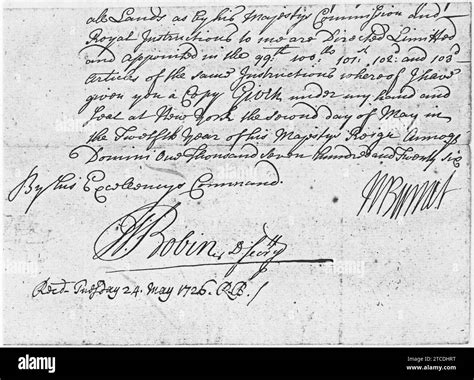 all Lands as by his Majestys Commission and
Royal Instructions to me are Directed Limitted
and appointed in the 99th 100th 101st 102d and 103d
Articles of the same Instructions whereof I have
given you a Copy Given under my hand and
Seal at New York the second day of May in
the Twelfth Year of his Majestys Reign Annoq
Domini One Thousand seven hundred and Twenty Six
By his Excellencys Command.
WBurnet
Is Bobin Dsecry
Recd Tuesday 24. May 1726. R.B.
alamy
Image ID: 2TCDHRT
www.alamy.com